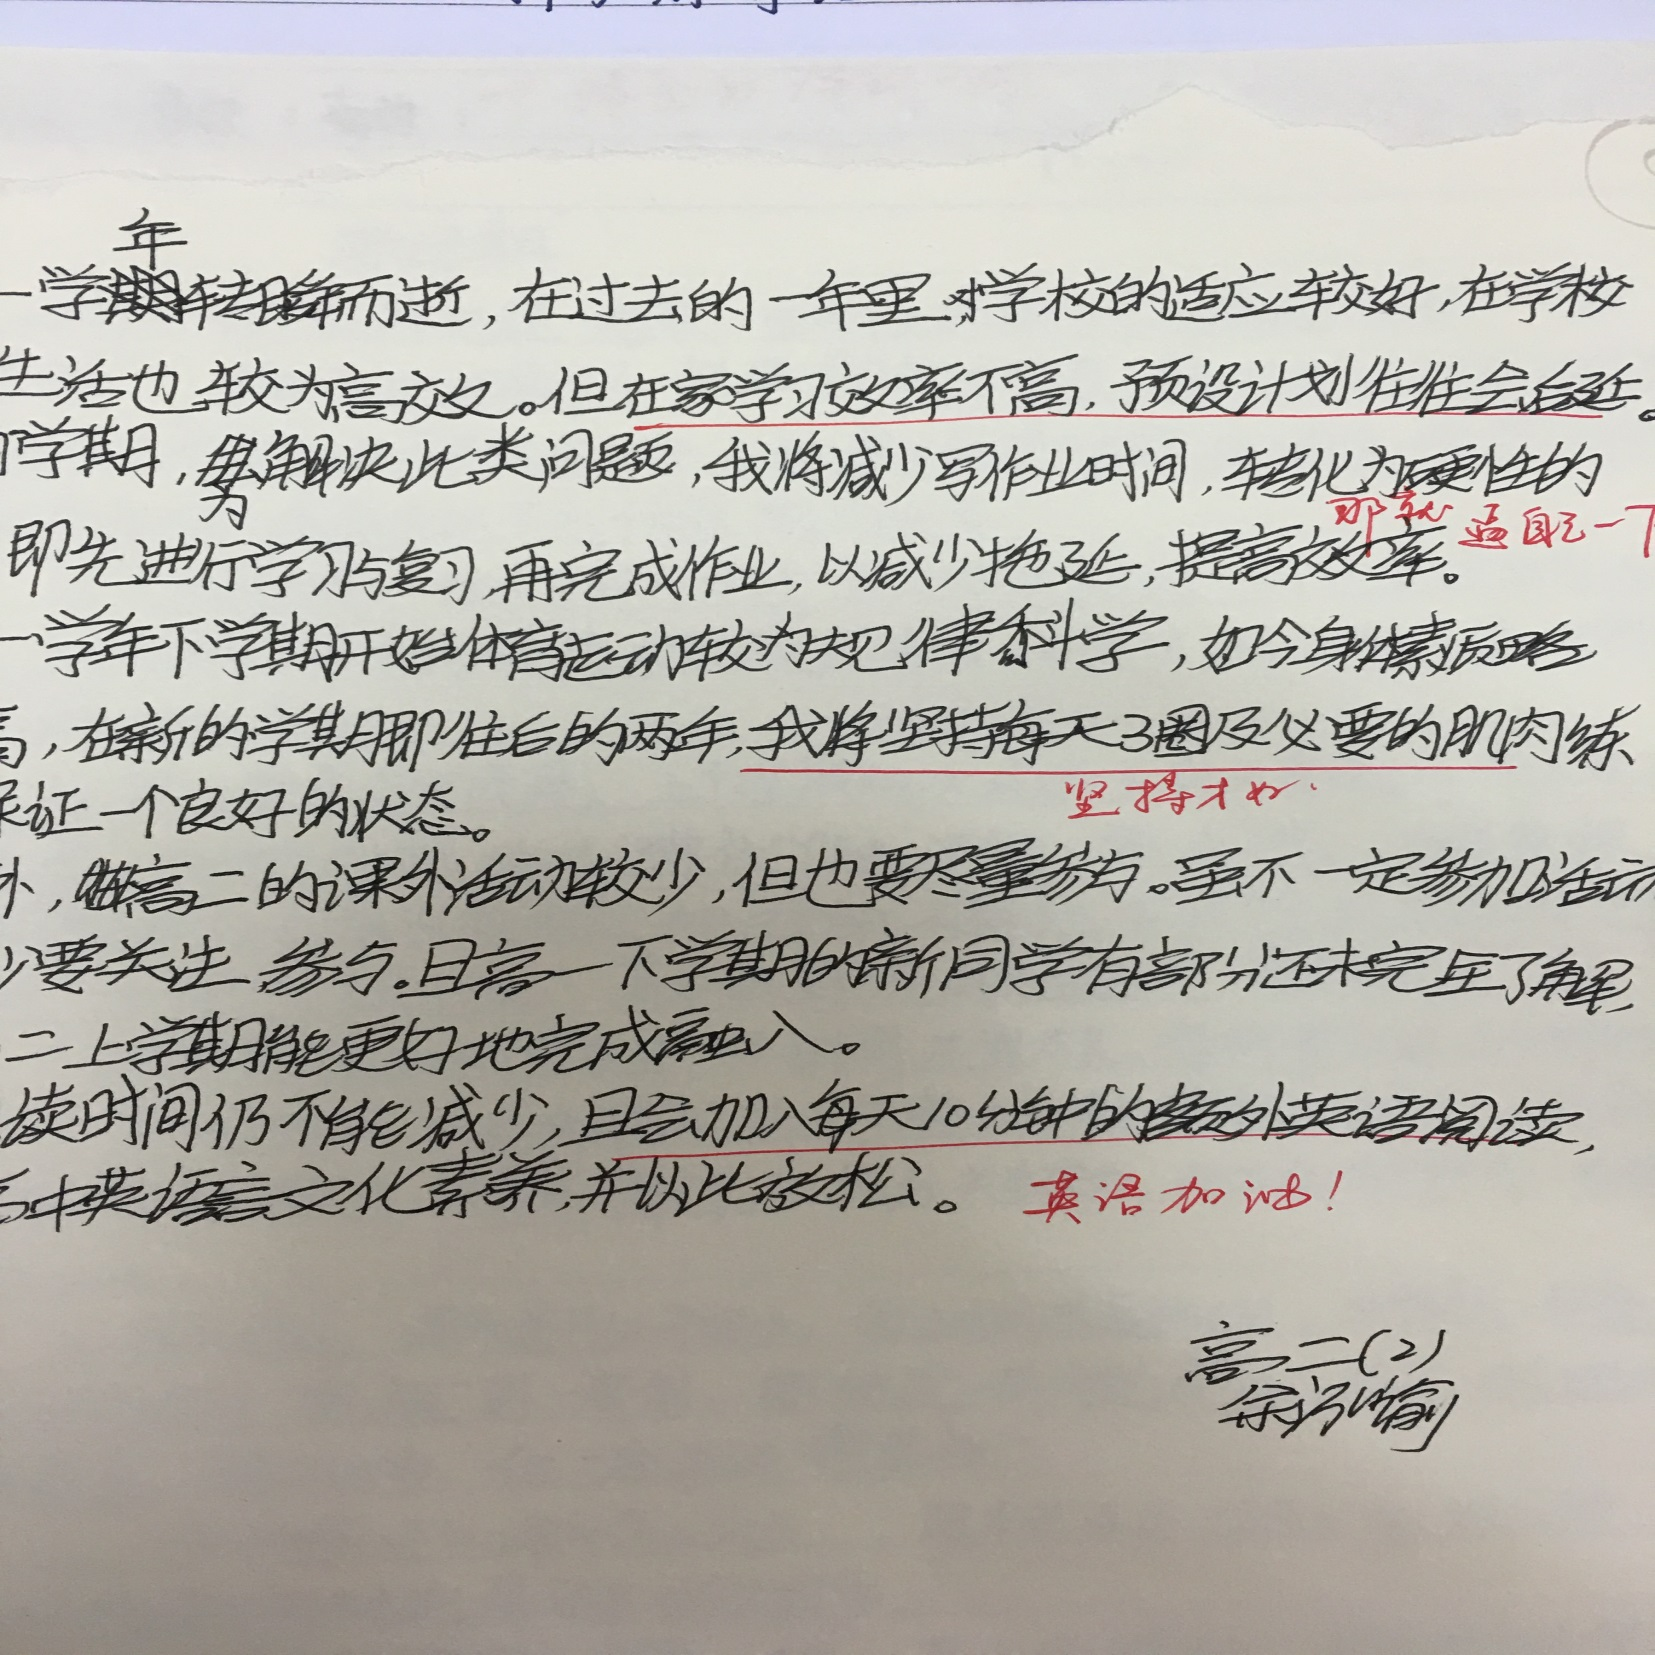 年
一学期转瞬而逝，在过去的一年里，对学校的适应较好，在学校
生活也较为高效。但在家学习效率不高，预设计划往往会后延。
学期，为解决此类问题，我将减少写作业时间，转化为硬性的
为
那就逼自己一下
即先进行学习与复习，再完成作业，以减少拖延，提高效率。
一学年下学期开始体育运动较为规律科学，如今身体素质略
高，在新的学期即往后的两年，我将坚持每天3圈及必要的肌肉练
保证一个良好的状态。
坚持才好.
外，高二的课外活动较少，但也要尽量参与。虽不一定参加活动
少要关注、参与。且高一下学期的新同学有部分还未完全了解，
二上学期能更好地完成融入。
读时间仍不能减少，且会加入每天10分钟的额外英语阅读，
高中英语言文化素养，并以此放松。
英语加油！
高二(2)